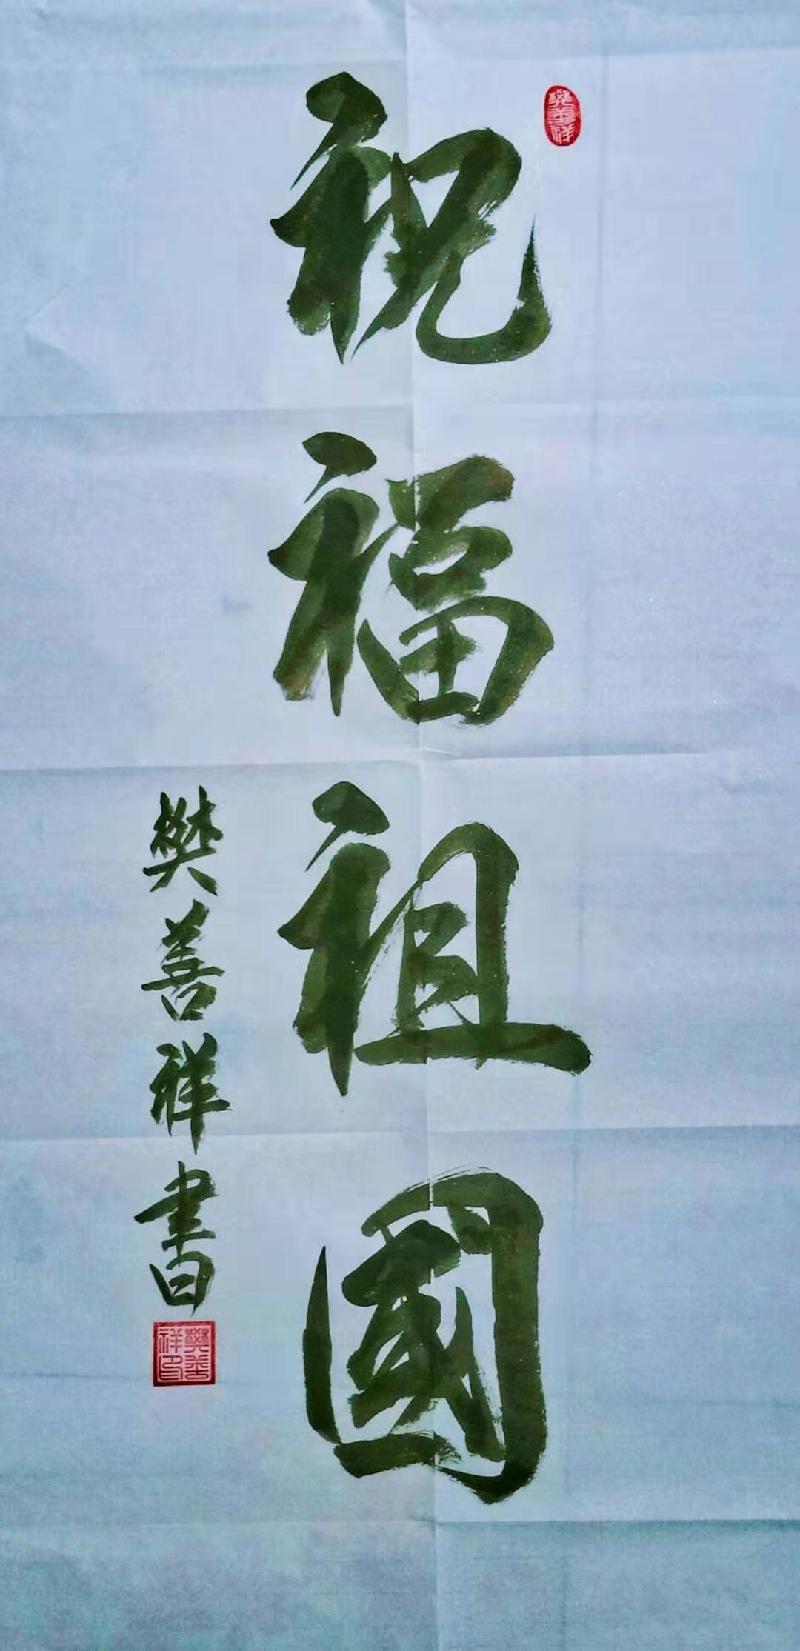 祝福祖國
樊善祥書
樊善祥
樊善祥印